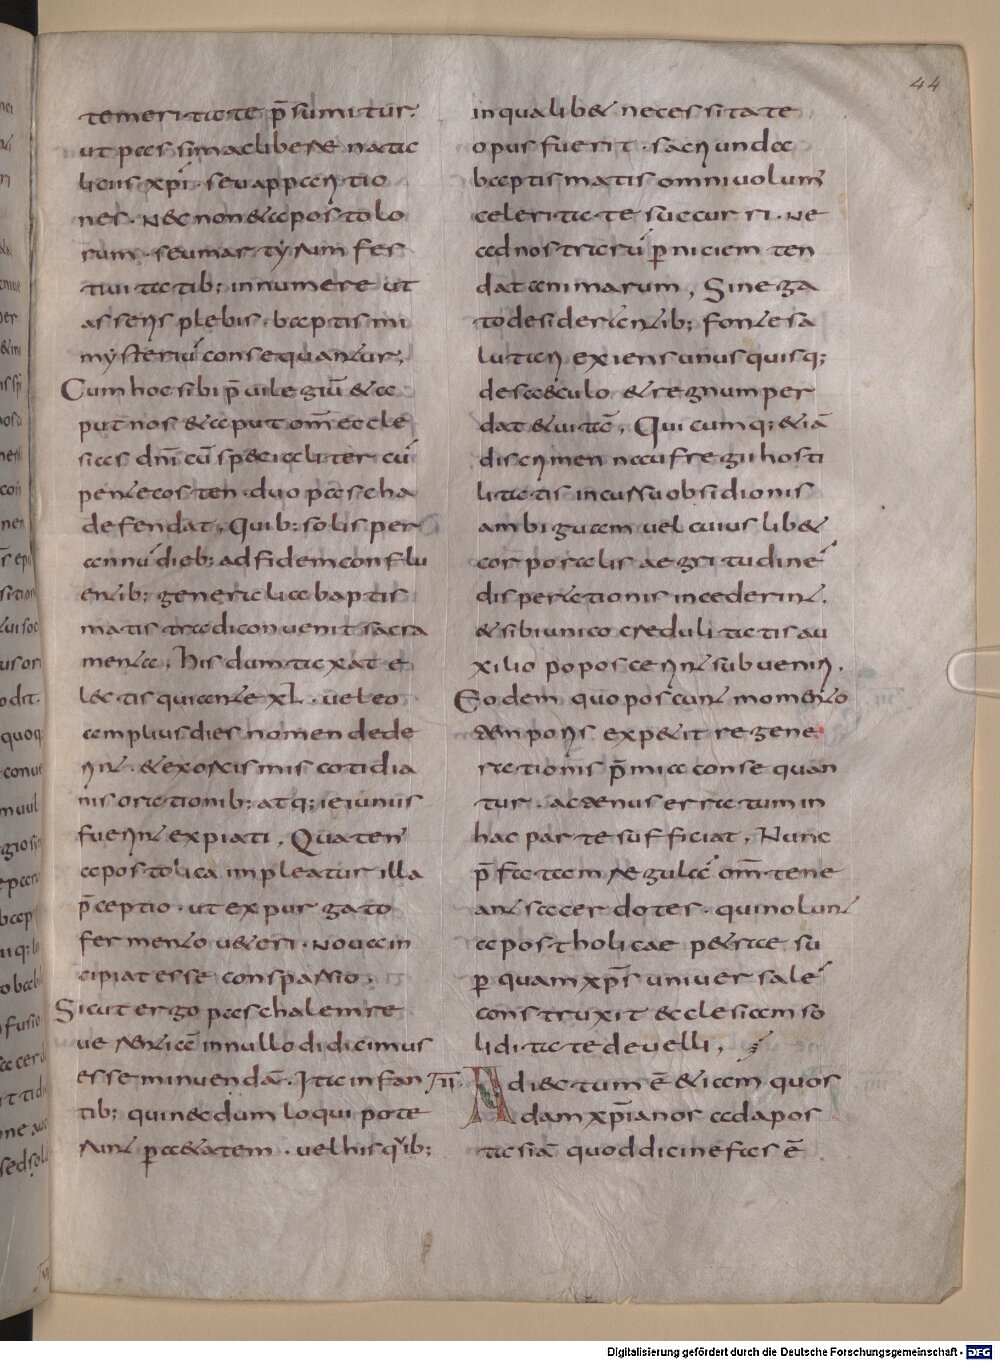 44
temeritate p̄sumitur.
ut passim ac libere natta
licius xp̄i · seu apparitio
nes · nec non & aposto lo
rum · seu martyrum fes
tiuitatib; innumere ut
asseris plebis · baptismi
mysteriū consequantur;
Cum hoc sibi p̄uilegiū & a
put nos & aput om̄ eccle
sias dn̄i cū specialiter cū
pentecosten · duo pascha
defendat, Quib: solis per
annū dieb: ad fidem conflu
entib: generalia baptis
matis tradi conuenit sacra
menta, his dumtaxat e
lectis qui ante xl · uel eo
amplius dies nomen dede
rint · & exorcismis cotidia
nis orationib; atq; ieiuniis
fuerint expiati, Quaten'
apostolica impleatur illa
p̄ceptio · ut expurgato
fermento ueteri · noua in
cipiat esse consparsio;
Sicut ergo paschalem re
uerentiā in nullo didicimus
esse minuendā. Ita infan
tib; qui necdum loqui pote
runt p̱ aetatem · uel his qͥb;
in qualib& necessitate
opus fuerit · sacri unda
baptismatis omni uolum'
celeritate succurri · Ne
ad nostrarū p̱niciem ten
dat animarum, Si nega
to desiderantib; fonte sa
lutari exiens unusquisq;
de saeculo & regnum per
dat & uitā, Quicumq; &iā
discrimen naufregii hosti
litatis incursu obsidionis
ambiguam uel cuiuslib&
corporalis aegritudinē
disperationis incederint.
& sibi unico credulitatis au
xilio poposcerint subueniri.
Eodem quo poscunt momento
temporis expetit regene
rationis p̄mia consequan
tur · actenus erratum in
hac parte sufficiat, Nunc
p̄fatam regulā om̄ tene
ant sacerdotes · qui nolunt
apostholicae petrae su
p̱ quam xp̄s uniuersalē
construxit ecclesiam so
liditate deuelli,
III. Adiectum ē &iam quos
dam xp̄ianos ad apos
tasiā quod dici nefas ē
Digitalisierung gefördert durch die Deutsche Forschungsgemeinschaft - DFG